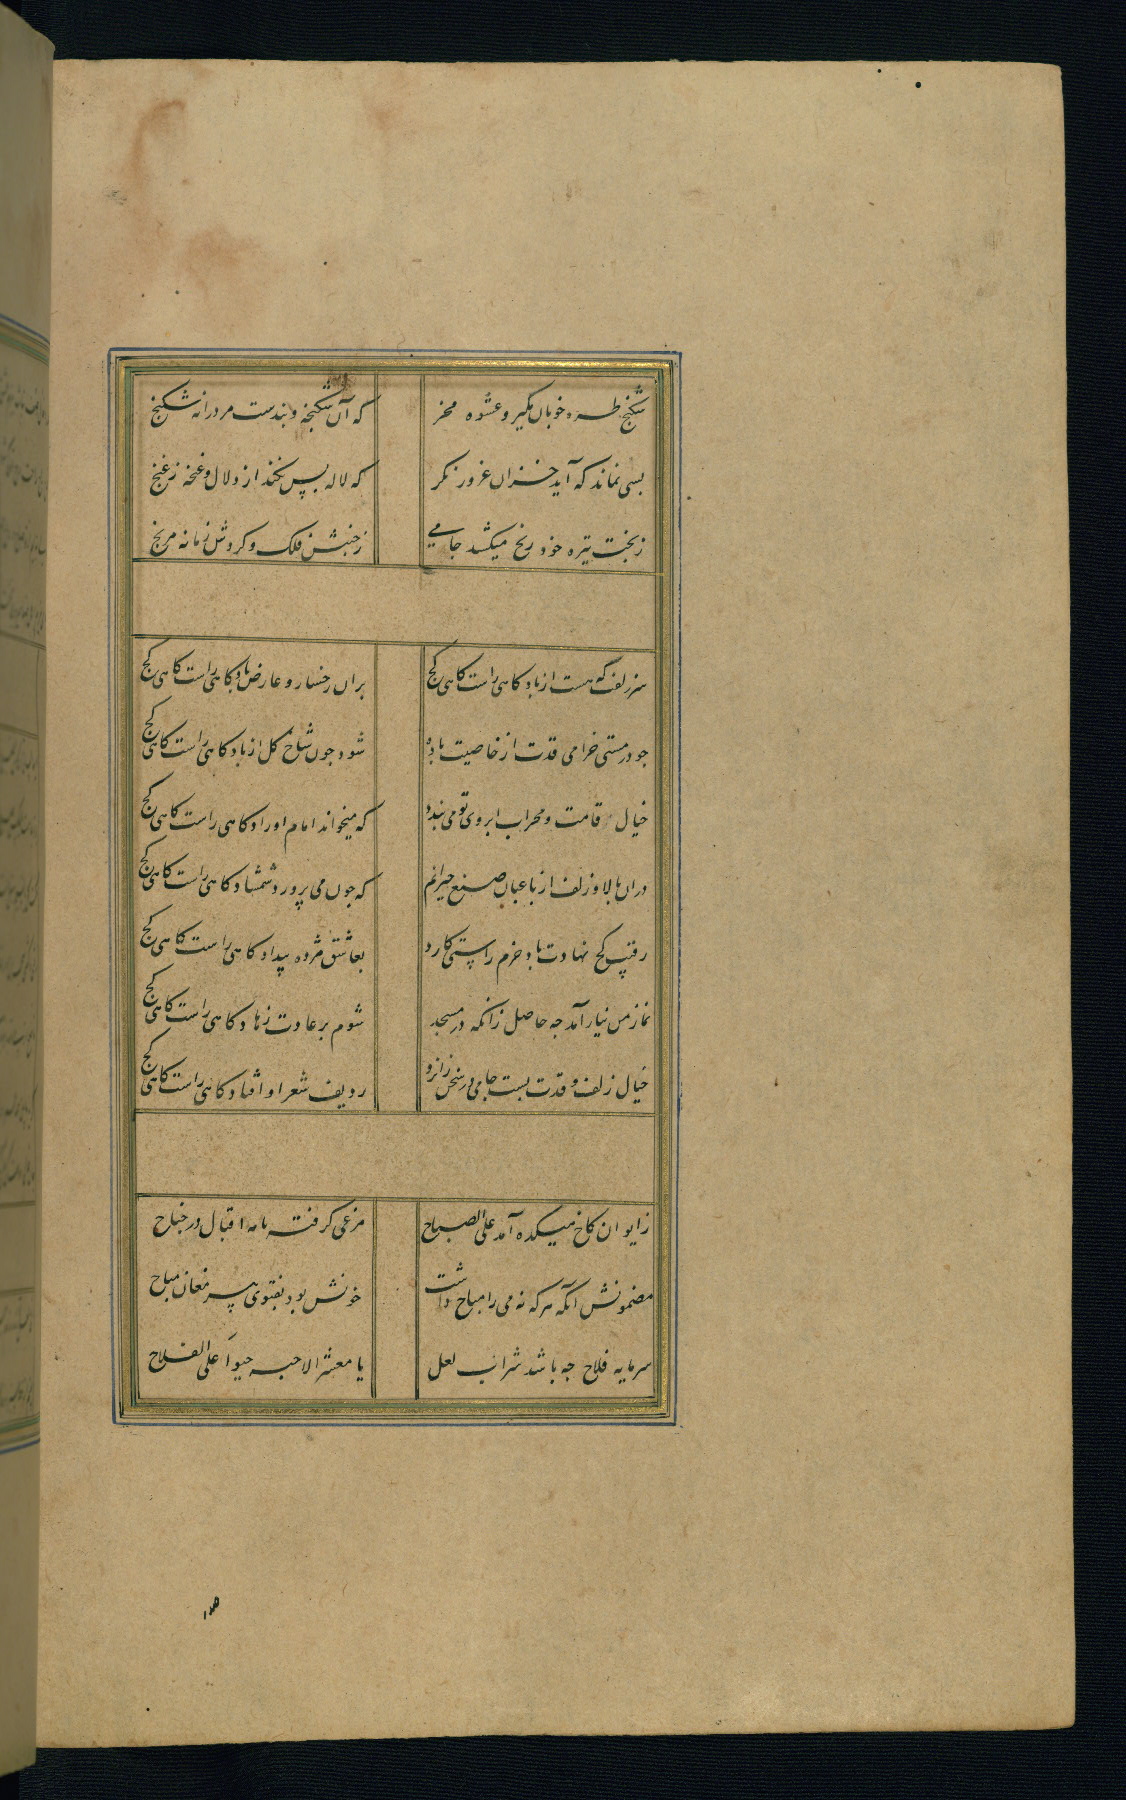 شکنج طره خوبان مگیر و عشوه مخر که آن شکنجه و بندست مردرا نه شکنج
بسی نماند که آید خزان غرور نکر که لاله بس نکند از دلال و غنچه ز غنج
ز بخت تیره خود رنج میکشد جامی ز جنبش فلک و کردش زمانه مرنج
سر زلفت که هست از باد کاهی راست کاهی کج بران رخسار و عارض باد کاهی راست کاهی کج
جو در مستی خرامی قدت از خاصیت باده شود جون شاخ کل از باد کاهی راست کاهی کج
خیال قامت و محراب ابروی تو می بندد که میخواند امام اوراد کاهی راست کاهی کج
دران بالا و زلف از باغبان صنع حیرانم که جون می پرورد شمشاد کاهی راست کاهی کج
رقیب کج نهادت باد خرم راستی کارد بعاشق مژده بیداد کاهی راست کاهی کج
نماز من نیاز آمد جه حاصل زانکه در مسجد شوم بر عادت زهاد کاهی راست کاهی کج
خیال زلف و قدت بست جامی در سخن زانرو ردیف شعر او افتاد کاهی راست کاهی کج
ز ایوان کاخ میکده آمد علی الصباح مرغی کرفته نامه اقبال در جناح
مضمونش آنکه هر که نه می را مباح داشت خونش بود بفتوی پیر مغان مباح
سرمایه فلاح جه باشد شراب لعل یا معشر الاحبه حیوا علی الفلاح